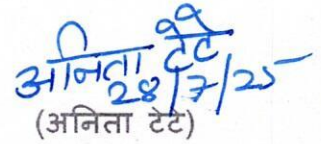 अनिता टेटे
28/7/25
(अनिता टेटे)